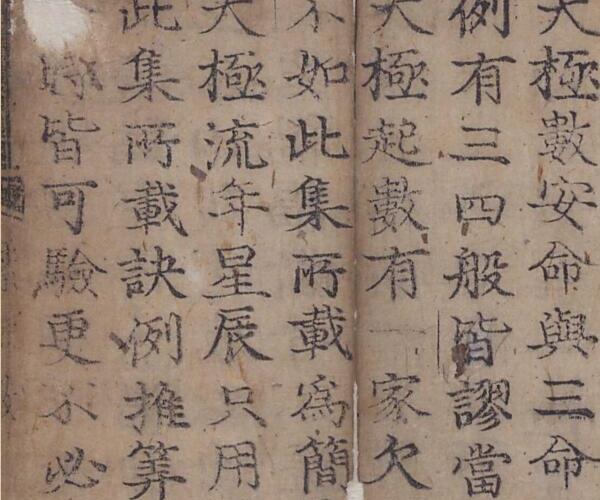 大極數安命與三命
例有三四般皆謬當
大極起數有一家欠
不如此集所載為簡
大極流年星辰只用
此集所載訣例推算
皆可驗更不必